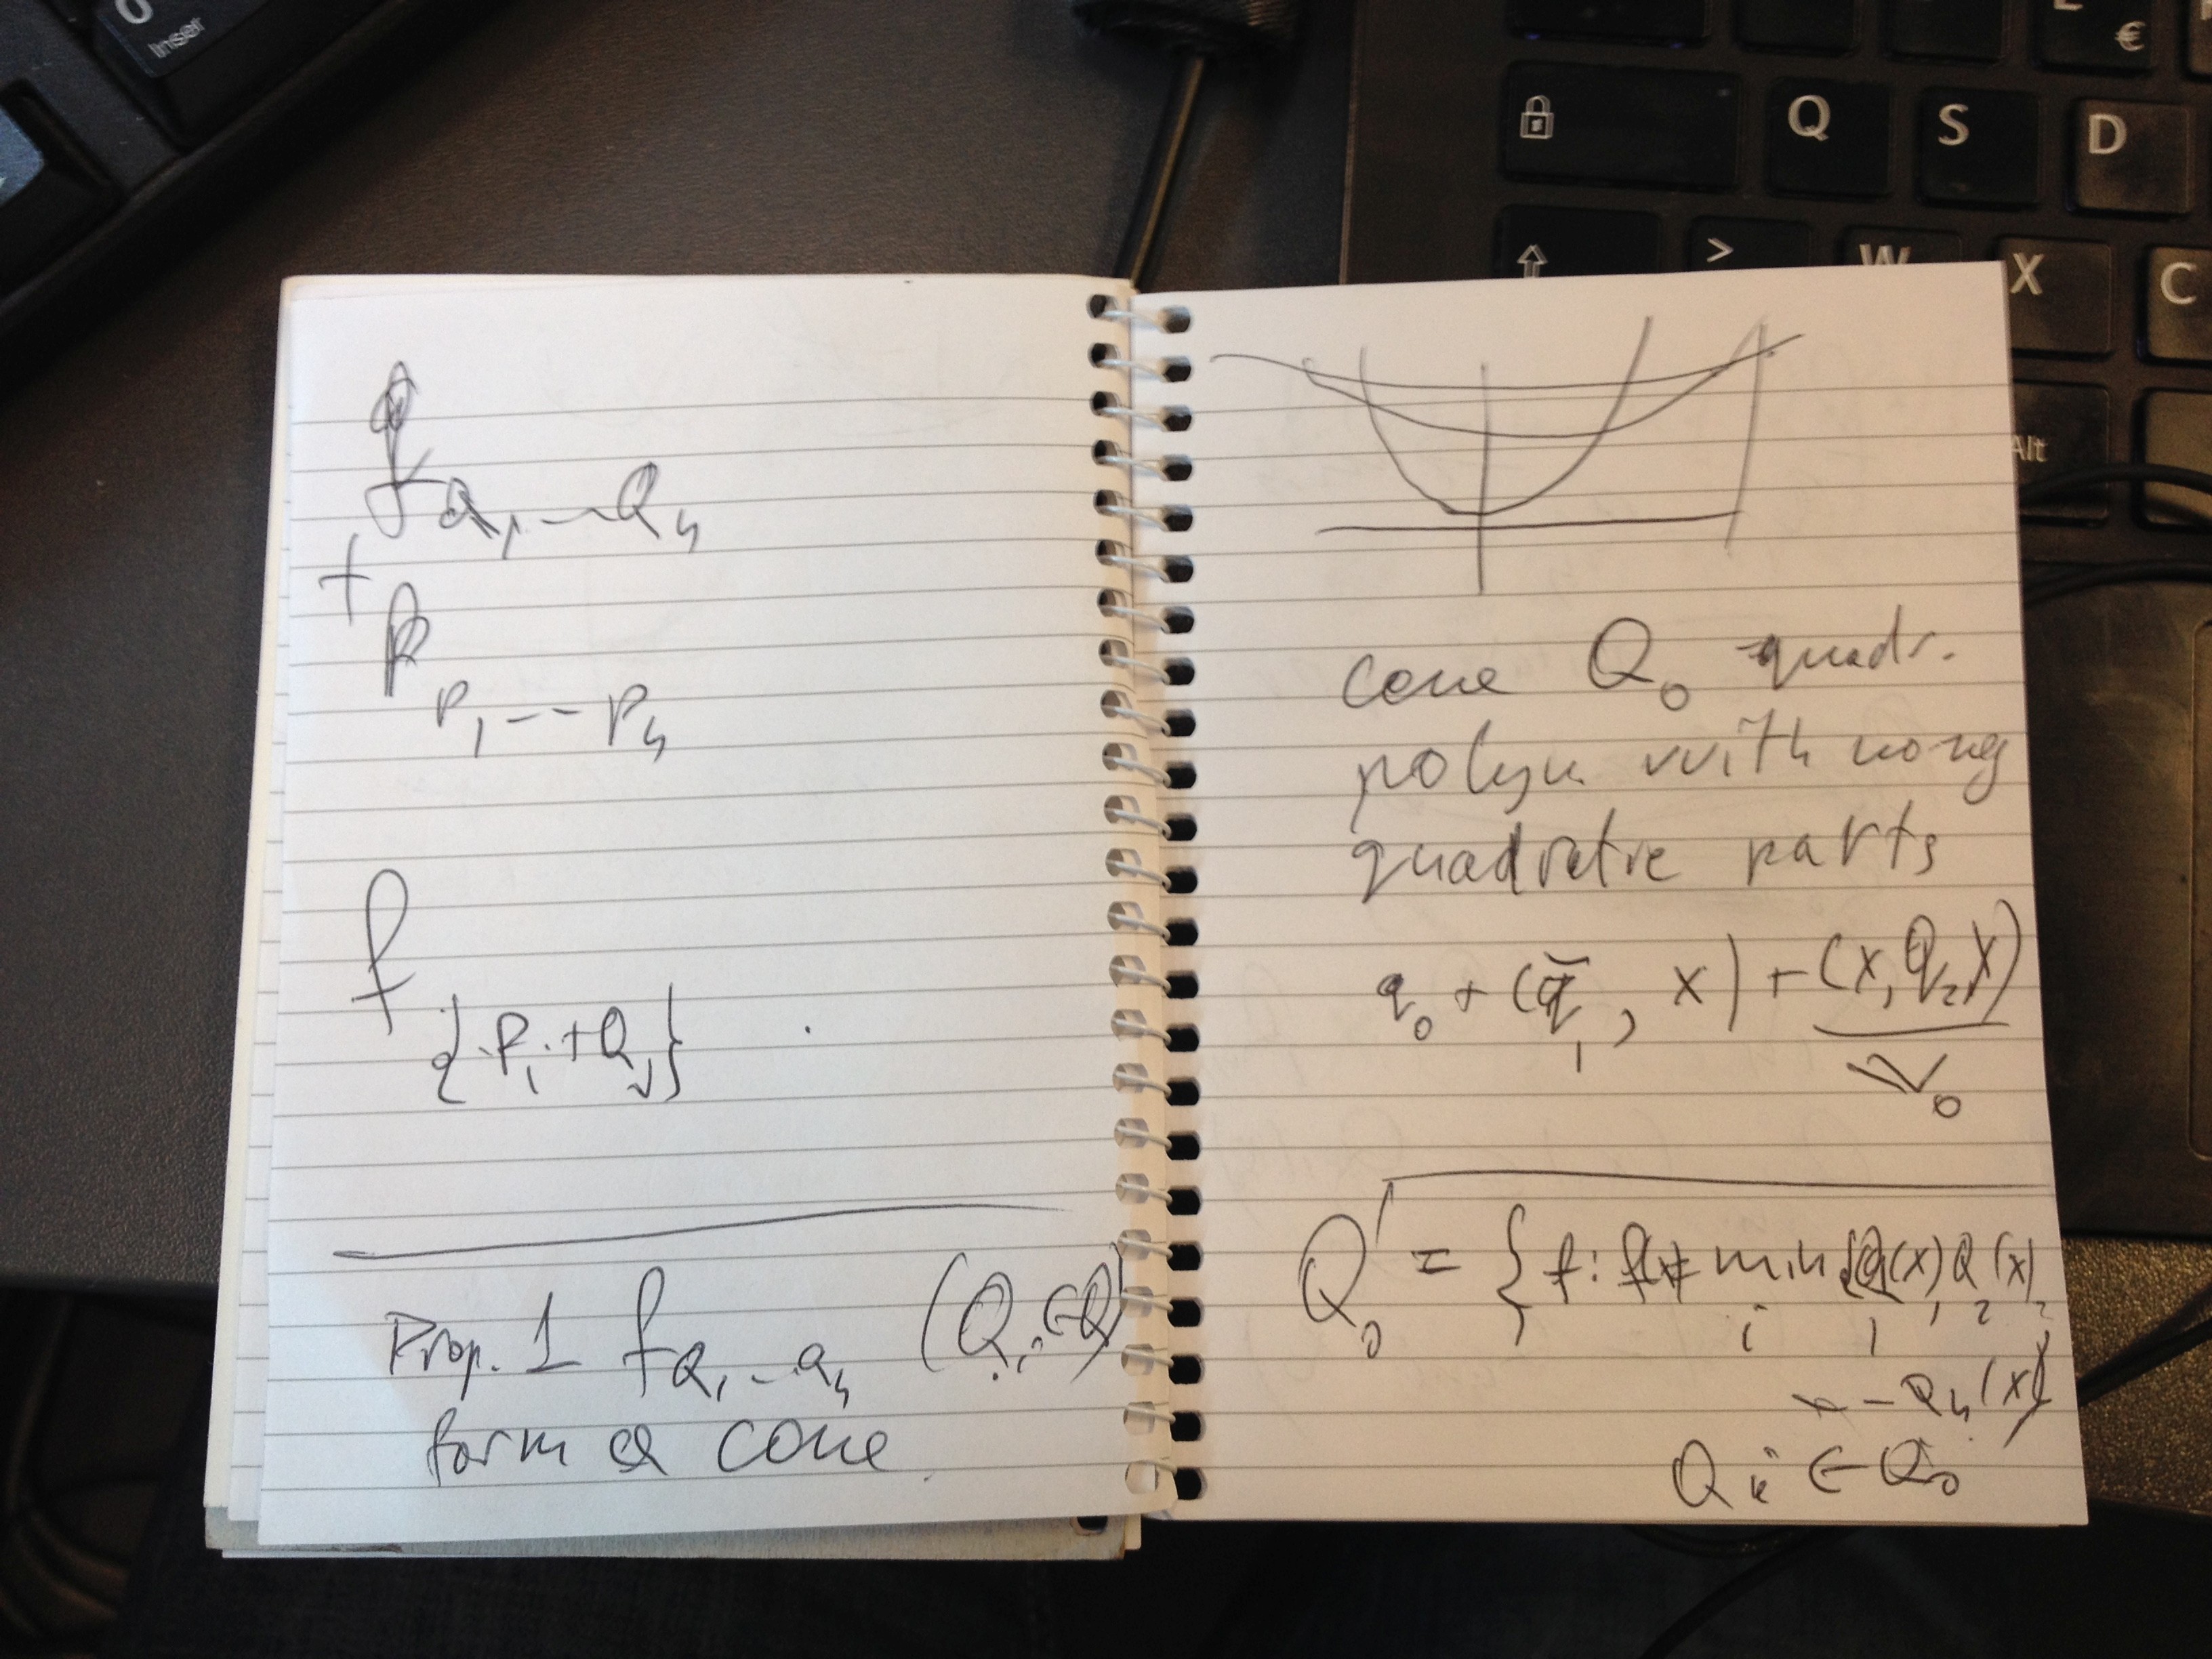 0
Inser
€
Q
S
D
>
W
X
C
Alt
f Q₁ --- Qₙ
+
f P₁ --- Pₙ
f {Pᵢ + Qⱼ}
Prop. 1 f Q₁ -- Qₙ (Qᵢ ∈ Q)
form a cone.
cone Q₀ quadr.
polyn with noneg
quadratic parts
q₀ + (q̄₁, x) + (x, Q₂x)
V₀
Q₀' = { f: f(x) = min {Q₁(x), Q₂(x),
i
-- Qₙ(x)}
Qᵢ ∈ Q₀